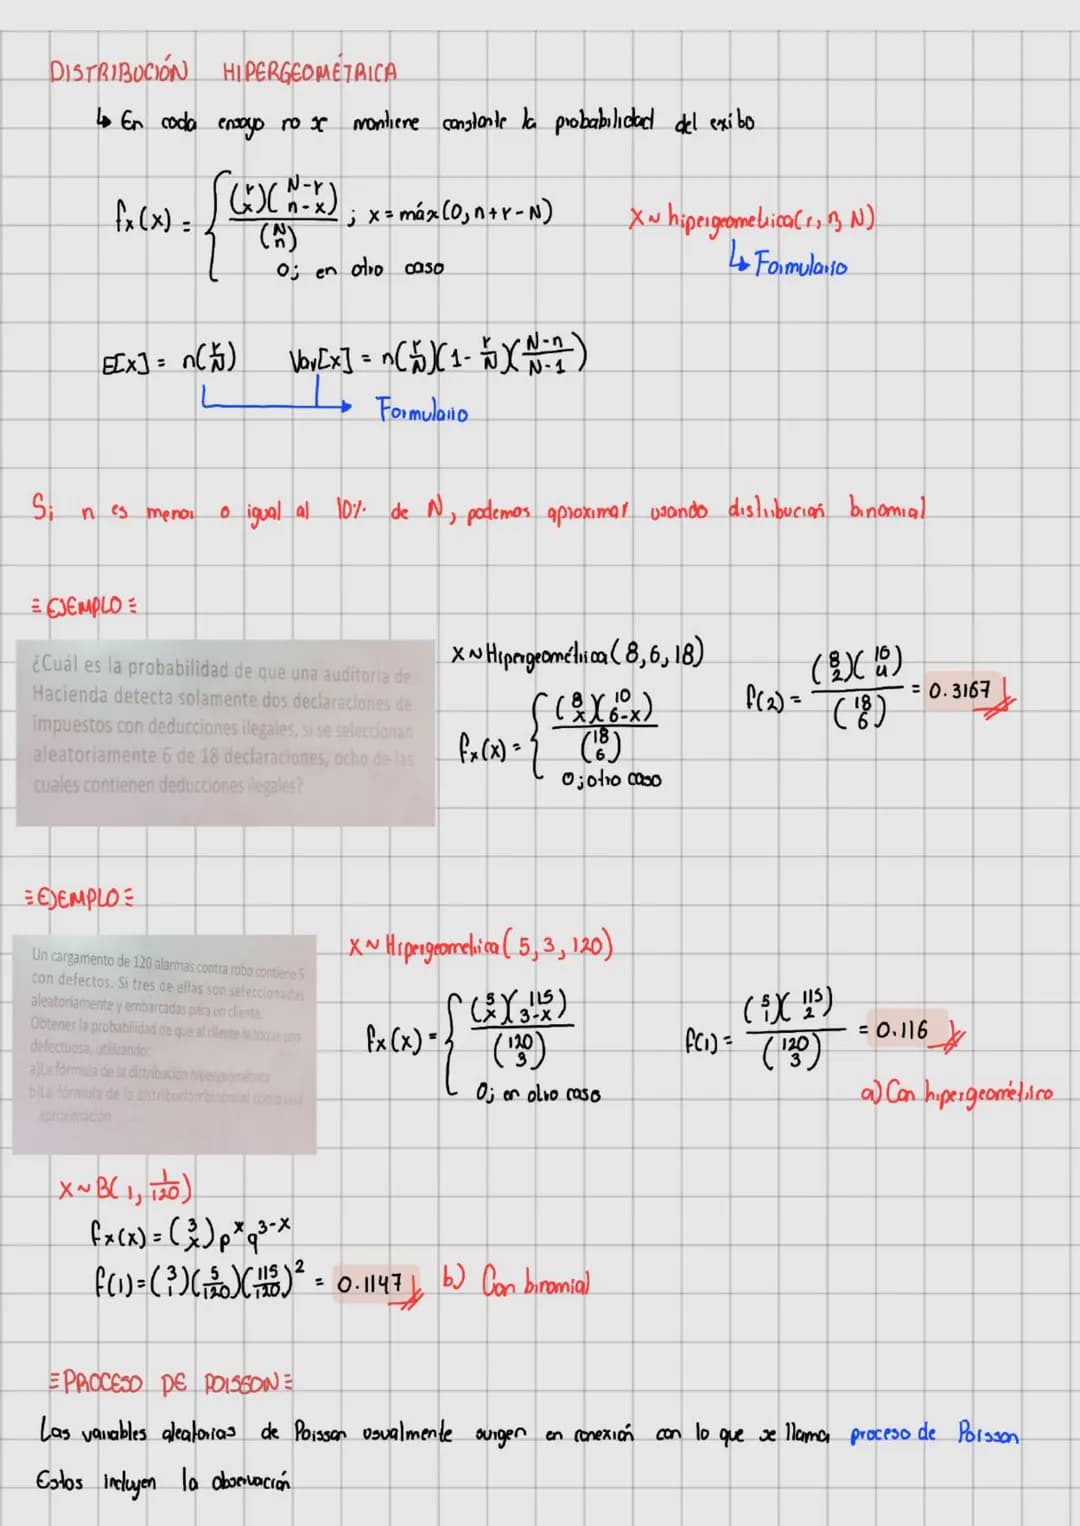 DISTRIBUCIÓN HIPERGEOMÉTRICA
↳ En cada ensayo no se mantiene constante la probabilidad del exito
fx(x) = { (r x)(N-r n-x) / (N n) ; x = máx(0, n+r-N)
0; en otro caso
X ~ hipergeometrica(r, n, N)
↳ Formulario
E[x] = n(r/N) Var[x] = n(r/N)(1 - r/N)(N-n/N-1)
Formulario
Si n es menor o igual al 10% de N, podemos aproximar usando distribución binomial
= EJEMPLO =
¿Cuál es la probabilidad de que una auditoria de
Hacienda detecta solamente dos declaraciones de
impuestos con deducciones ilegales, si se seleccionan
aleatoriamente 6 de 18 declaraciones, ocho de las
cuales contienen deducciones ilegales?
X ~ Hipergeométrica(8,6,18)
fx(x) = { (8 x)(10 6-x) / (18 6)
0; otro caso
f(2) = (8 2)(10 4) / (18 6) = 0.3167
= EJEMPLO =
Un cargamento de 120 alarmas contra robo contiene 5
con defectos. Si tres de ellas son seleccionadas
aleatoriamente y embarcadas para un cliente.
Obtener la probabilidad de que al cliente le toque una
defectuosa, utilizando:
a)La fórmula de la distribución hipergeométrica
b)La fórmula de la distribución binomial como una
aproximación
X ~ Hipergeometrica(5,3,120)
fx(x) = { (5 x)(115 3-x) / (120 3)
0; en otro caso
f(1) = (5 1)(115 2) / (120 3) = 0.116
a) Con hipergeométrico
X ~ B(1, 1/120)
fx(x) = (3 x) p^x q^3-x
f(1) = (3 1)(5/120)(115/120)^2 = 0.1147 b) Con binomial
= PROCESO DE POISSON =
Las variables aleatorias de Poisson usualmente surgen en conexión con lo que se llama proceso de Poisson
Estos incluyen la observación